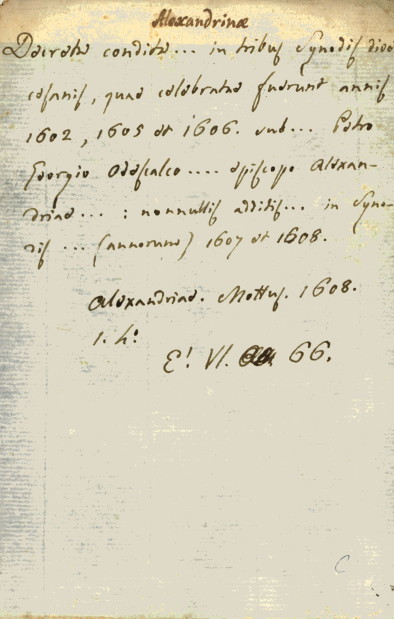 Alexandrinæ
Decreta condita... in tribus Synodis dioe
cesanis, quae celebratae fuerunt annis
1602, 1605 et 1606. sub... Petro
Georgio Odescalco.... episcopo Alexan-
driae... : nonnullis additis... in Syno-
dis ... (annorum) 1607 et 1608.
Alexandriae. Mottus. 1608.
1. h.
E! VI. 66.
C